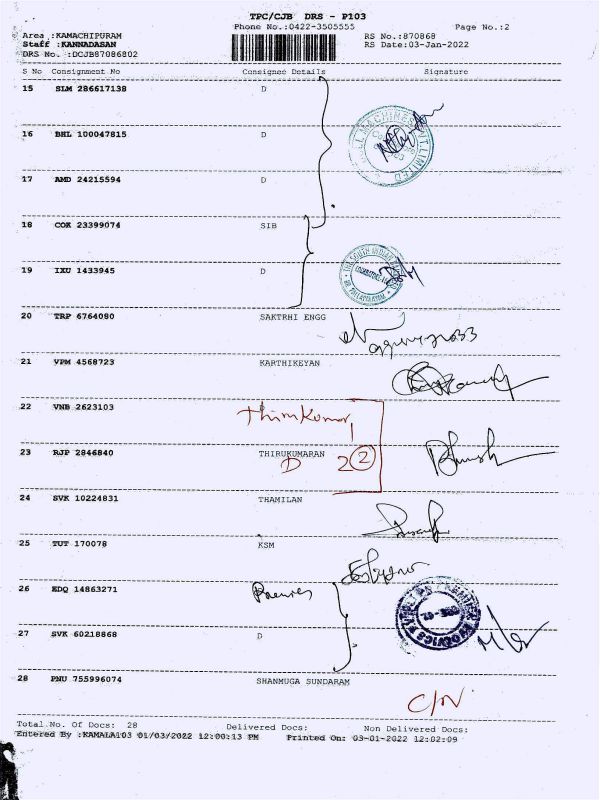 TPC/CJB DRS - P103
Phone No.:0422-3505555 Page No.:2
Area :KAMACHIPURAM RS No.:870868
Staff :KANNADASAN RS Date:03-Jan-2022
DRS No. :DCJB87086802
S No Consignment No Consignee Details Signature
15 SLM 286617138 D
16 BHL 100047815 D
17 AMD 24215594 D
18 COK 23399074 SIB
19 IXU 1433945 D
20 TRP 6764080 SAKTRHI ENGG
21 VPM 4568723 KARTHIKEYAN
22 VNB 2623103
Thirukumar
23 RJP 2846840 THIRUKUMARAN
D 2 2
24 SVK 10224831 THAMILAN
25 TUT 170078 KSM
26 EDQ 14863271
27 SVK 60218868 D
28 PNU 755996074 SHANMUGA SUNDARAM
C/N
Total No. Of Docs: 28 Delivered Docs: Non Delivered Docs:
Entered By :KAMALA103 01/03/2022 12:00:13 PM Printed On: 03-01-2022 12:02:09